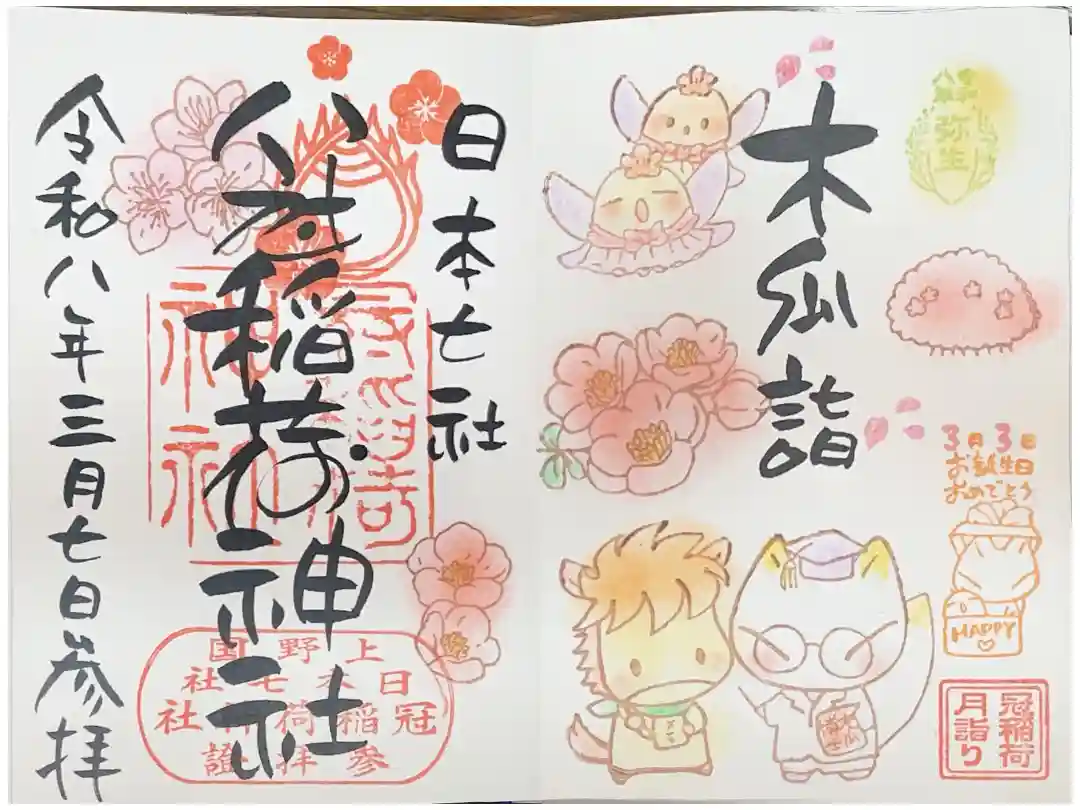 木瓜詣
令和
八年
弥生
3月3日
お誕生日
おめでとう
HAPPY
冠稲荷
月詣り
日本七社
稲荷神社
令和八年三月七日参拝
上野国
日本七社
冠稲荷神社
參拝證